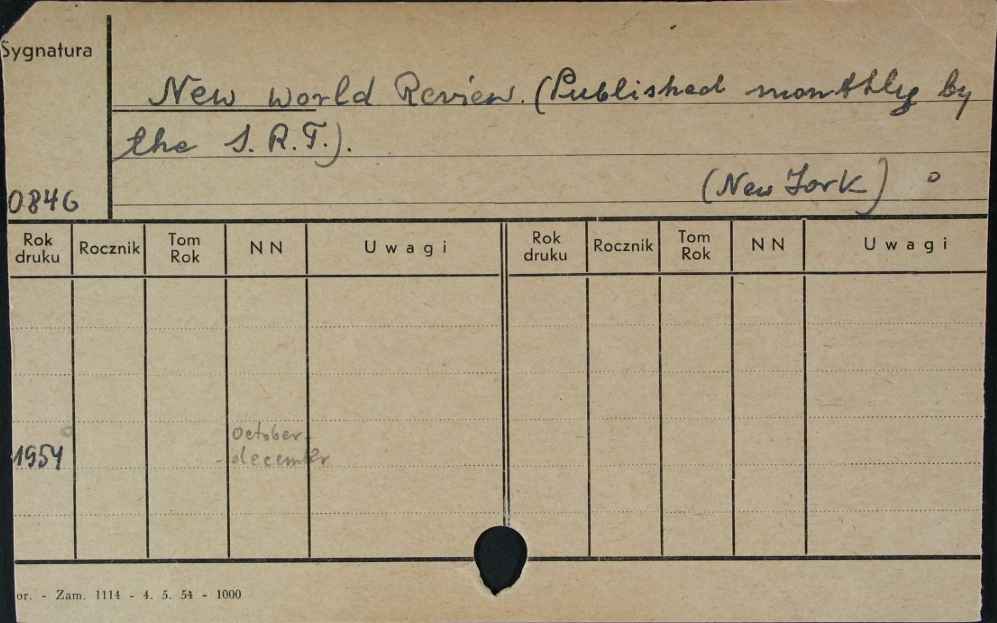 Sygnatura
New World Review. (Published monthly by
the S.R.T.).
(New York)
0846
Rok druku Rocznik Tom Rok NN Uwagi Rok druku Rocznik Tom Rok NN Uwagi
October-
1954 -december
or. - Zam. 1114 - 4. 5. 54 - 1000